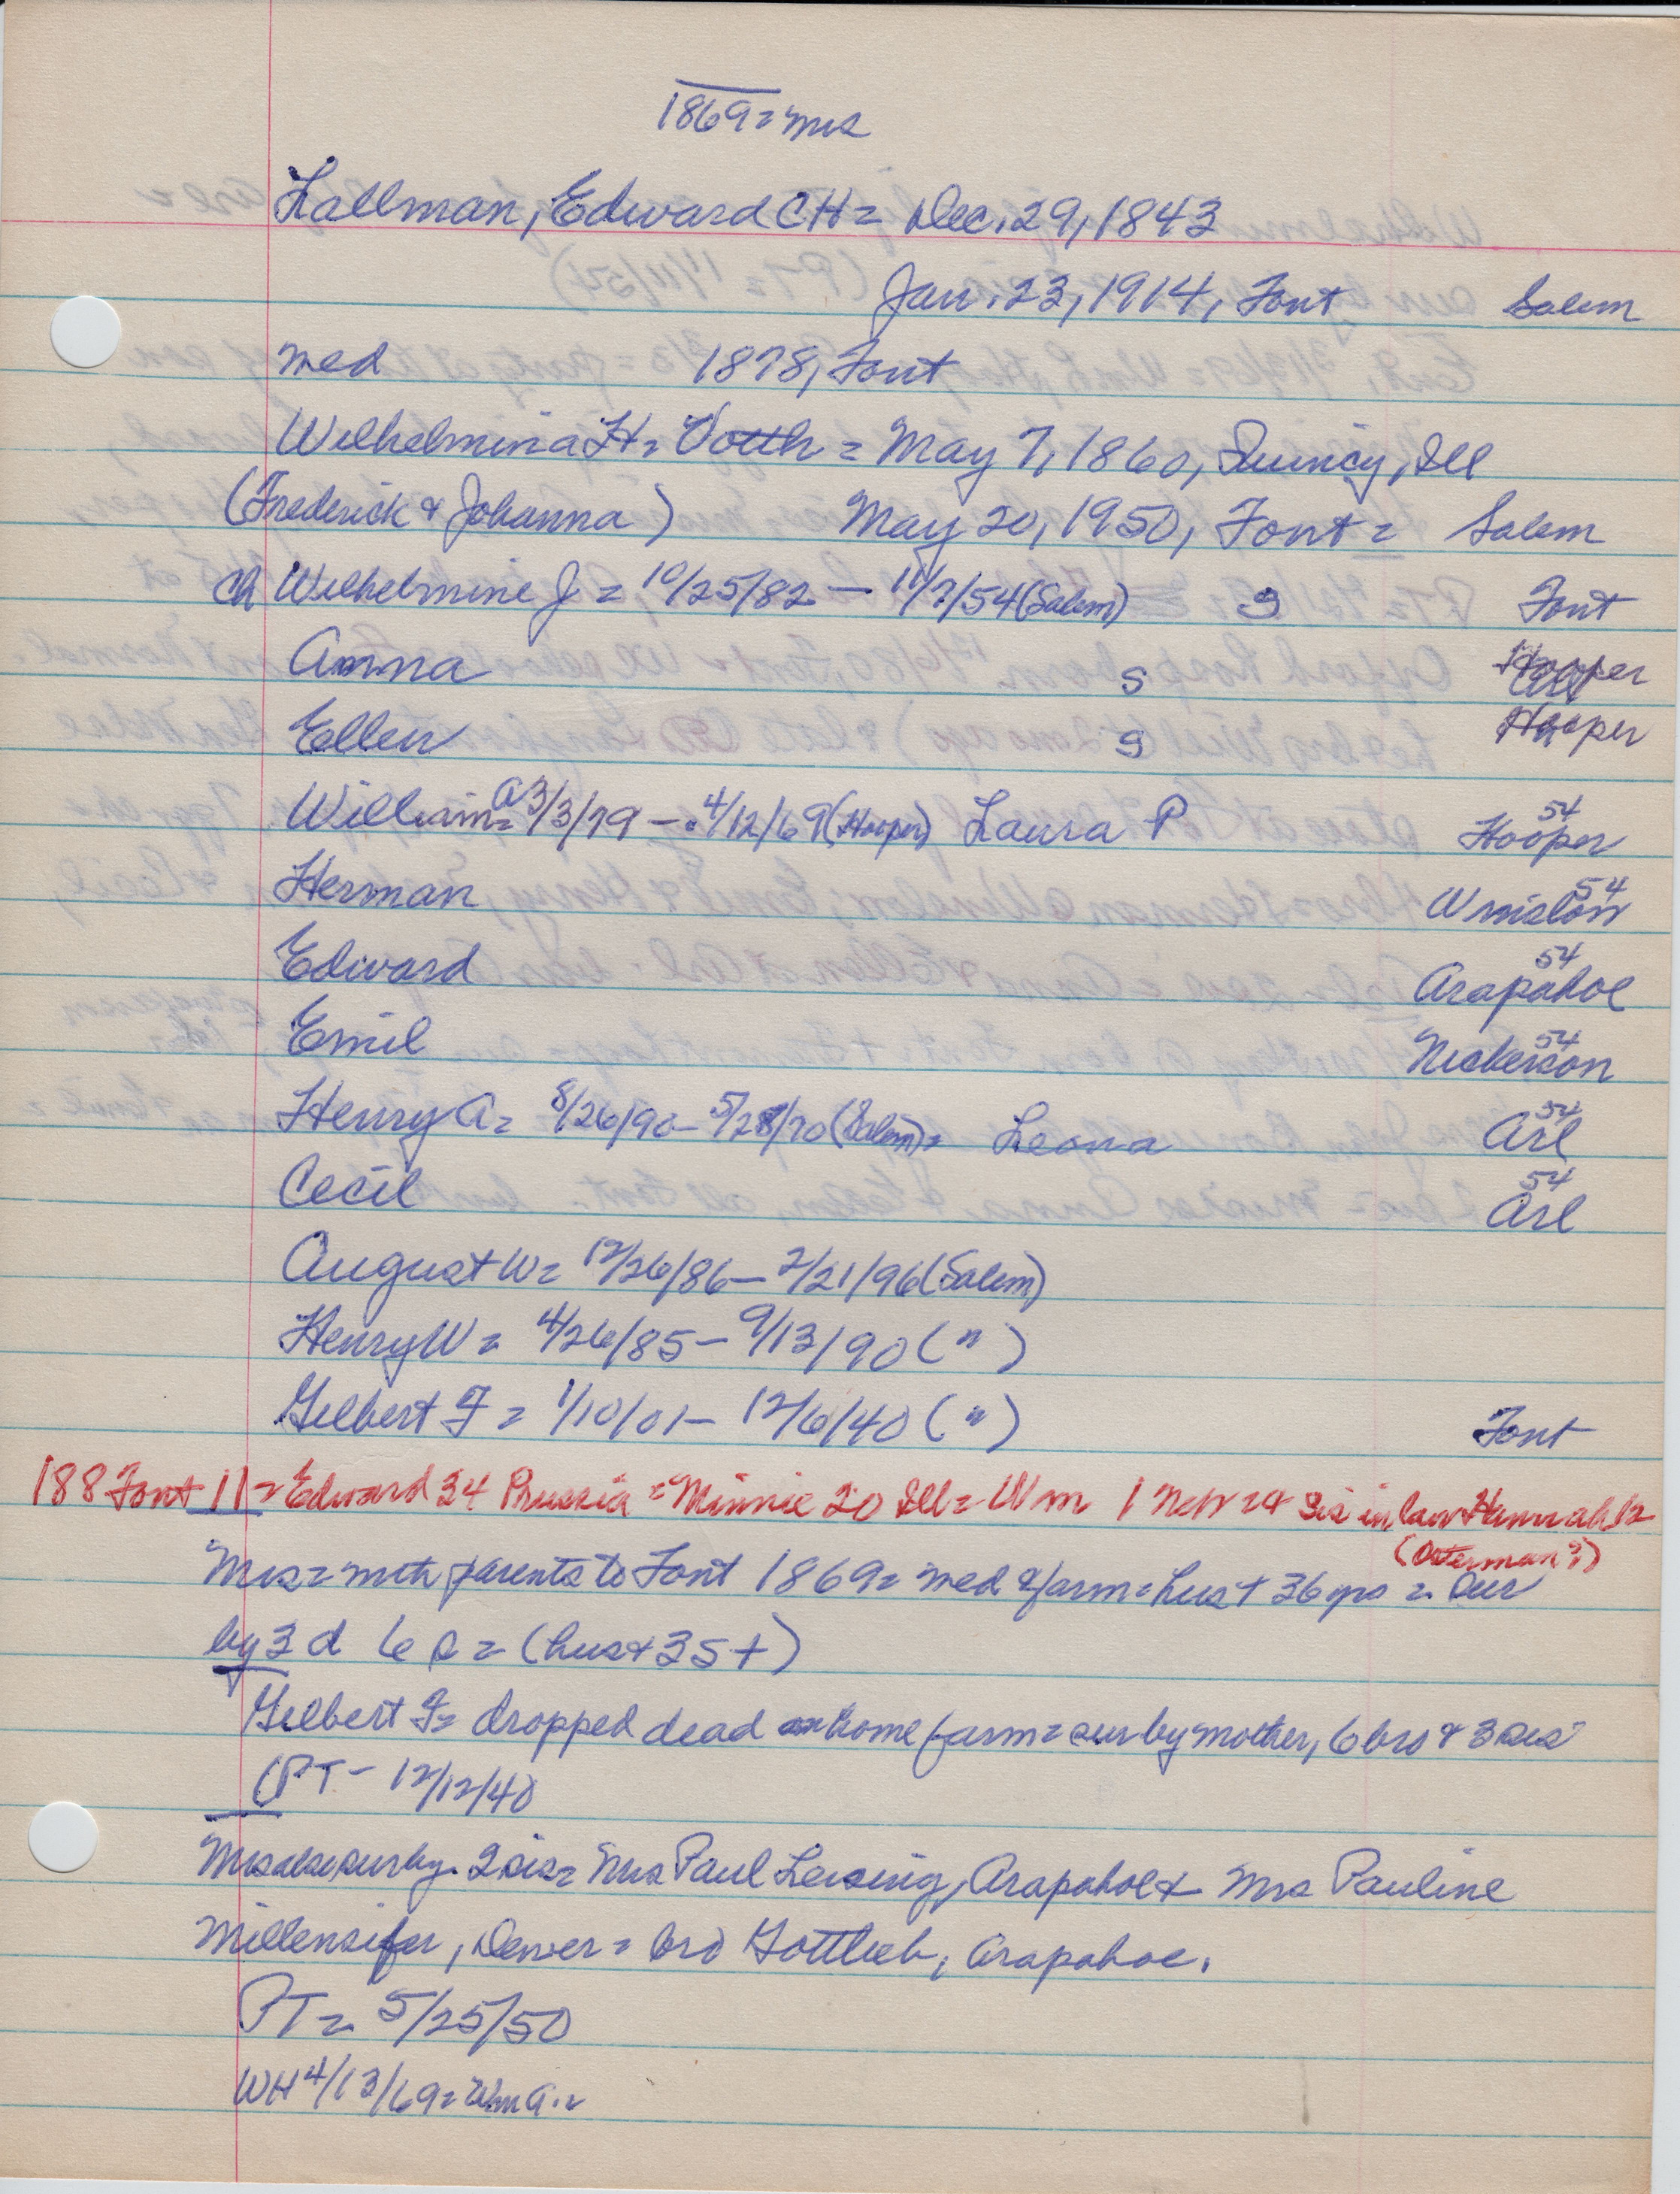 1869 = Mrs
Lallman, Edward CH = Dec. 29, 1843
Jan. 23, 1914, Font Salem
Med 1878, Font
Wilhelmina H = Voth = May 7, 1860, Quincy, Ill
(Frederick & Johanna) May 20, 1950, Font = Salem
Ch Wilhelmine J = 10/25/82 — 11/7/54 (Salem) S Font
Anna S Hooper
Ellen S Hooper
William A = 3/3/79 - 4/12/69 (Hooper) Laura P Hooper 54
Herman Winslow 54
Edward Arapahoe 54
Emil Nickerson 54
Henry A = 8/26/90 - 5/28/70 (Salem) = Leona Arl 54
Cecil Arl 54
August W = 12/26/86 — 2/21/96 (Salem)
Henry W = 4/26/85 - 9/13/90 ( " )
Gilbert F = 1/10/01 - 12/6/40 ( " ) Font
188 Font 11 = Edward 34 Prussia = Minnie 20 Ill = Wm 1 Neb = & Sis in law Hannah 12
(Osterman?)
Mrs = with parents to Font 1869 = Med & farm = hus + 36 yrs = sur
by 3 d 6 s = (hus + 35 +)
Gilbert F = dropped dead on home farm = sur by mother, 6 bro & 3 sis
(PT - 12/12/40
Mrs also sur by 2 sis = Mrs Paul Leising, Arapahoe & Mrs Pauline
Millensifer, Denver = bro Gottlieb, Arapahoe.
PT = 5/25/50
WH 4/13/69 = Wm A. =